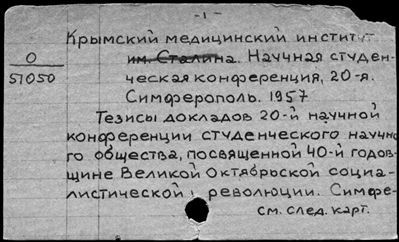 - 1 -
Крымский медицинский институт
О
51050
им. Сталина. Научная студен-
ческая конференция, 20-я.
Симферополь. 1957
Тезисы докладов 20-й научной
конференции студенческого научно
го общества, посвященной 40-й годов-
щине Великой Октябрьской социа-
листической революции. Симфе-
см. след. карт.